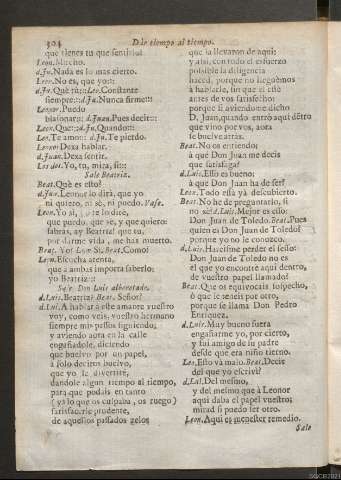 304 Dar tiempo al tiempo.
que tienes tu que sentirlo?
Leon. Mucho.
d.Ju. Nada es lo mas cierto.
Leon. No es, que yo:::
d.Ju. Què tu::: Leo. Constante
siempre::: d.Ju. Nunca firme:::
Leonor. Puedo
blasonar::: d.Juan. Pues decir:::
Leon. Que::: d.Ju. Quando:::
Leo. Te amo::: d.Ju. Te pierdo.
Leonor. Dexa hablar.
d.Juan. Dexa sentir.
Los dos. Yo, tu, mira, si:::
Sale Beatriz.
Beat. Què es esto?
d.Jua. Leonor lo dirà, que yo
ni quiero, ni sè, ni puedo. Vase.
Leon. Yo si, que te lo dirè,
que puedo, que sè, y que quiero:
sabràs, ay Beatriz! que tu,
por darme vida, me has muerto.
Beat. Yo? Leon. Si. Beat. Como?
Leon. Escucha atenta,
que à ambas importa saberlo:
yo Beatriz:::
Sale Don Luis alborotado.
d.Luis. Beatriz? Beat. Señor?
d.Lui. A hablar à esse amante vuestro
voy, como veis, vuestro hermano
siempre mis passos siguiendo;
y aviendo aora en la calle
engañadole, diciendo
que buelvo por un papel,
à solo deciros buelvo,
que yo le divertirè,
dandole algun tiempo al tiempo,
para que podais en tanto
(ya lo que os culpaba, os ruego)
satisfacerle prudente,
de aquellos passados zelos
que la llevaron de aqui;
y assi, con todo el esfuerzo
possible la diligencia
haced, porque no lleguèmos
à hablarle, sin que el estè
antes de vos satisfecho:
porque si aviendome dicho
D. Juan, quando entrò aqui dètro
que vino por vos, aora
se buelve atràs.
Beat. No os entiendo;
à què Don Juan me decis
que satisfaga?
d.Luis. Esso es bueno;
à què Don Juan ha de ser?
Leon. Todo està yà descubierto.
Beat. No he de preguntarlo, si
no sè? d.Luis. Mejor es esso:
Don Juan de Toledo. Beat. Pues
quien es Don Juan de Toledo?
porque yo no le conozco.
d.Luis. Harèisme perder el sesso:
Don Juan de Toledo no es
el que yo encontrè aqui dentro,
de vuestro papel llamado?
Beat. Que os equivocais sospecho,
ò que le teneis por otro,
porque se llama Don Pedro
Enriquez.
d.Luis. Muy bueno fuera
engañarme yo, por cierto,
y fui amigo de su padre
desde que era niño tierno.
Leo. Esto và malo. Beat. Decis
del que yo escrivì?
d.Lui. Del mesmo,
y del mesmo que à Leonor
aqui daba el papel vuestro;
mirad si puedo ser otro.
Leon. Aqui es menester remedio.
Sale